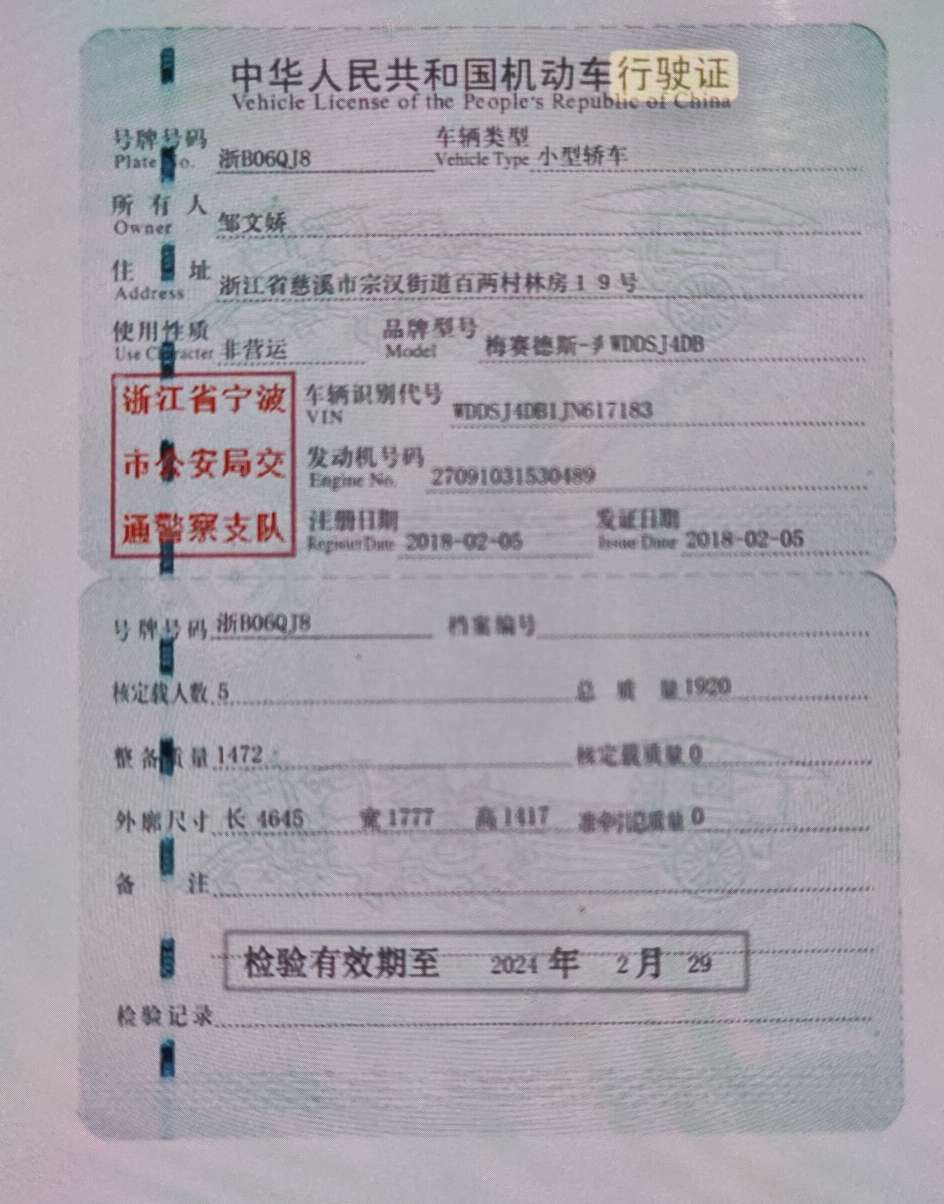 中华人民共和国机动车行驶证
Vehicle License of the People's Republic of China
号牌号码 Plate No. 浙B06QJ8 车辆类型 Vehicle Type 小型轿车
所有人 Owner 邹文娇
住址 Address 浙江省慈溪市宗汉街道百两村林房19号
使用性质 Use Character 非营运 品牌型号 Model 梅赛德斯- WDDSJ4DB
浙江省宁波
市公安局交
通警察支队
车辆识别代号 VIN WDDSJ4DB1JN617183
发动机号码 Engine No. 27091031530489
注册日期 Register Date 2018-02-05 发证日期 Issue Date 2018-02-05
号牌号码 浙B06QJ8 档案编号
核定载人数 5 总质量 1920
整备质量 1472 核定载质量 0
外廓尺寸 长 4645 宽 1777 高 1417 准牵引总质量 0
备注
检验有效期至 2024 年 2 月 29
检验记录